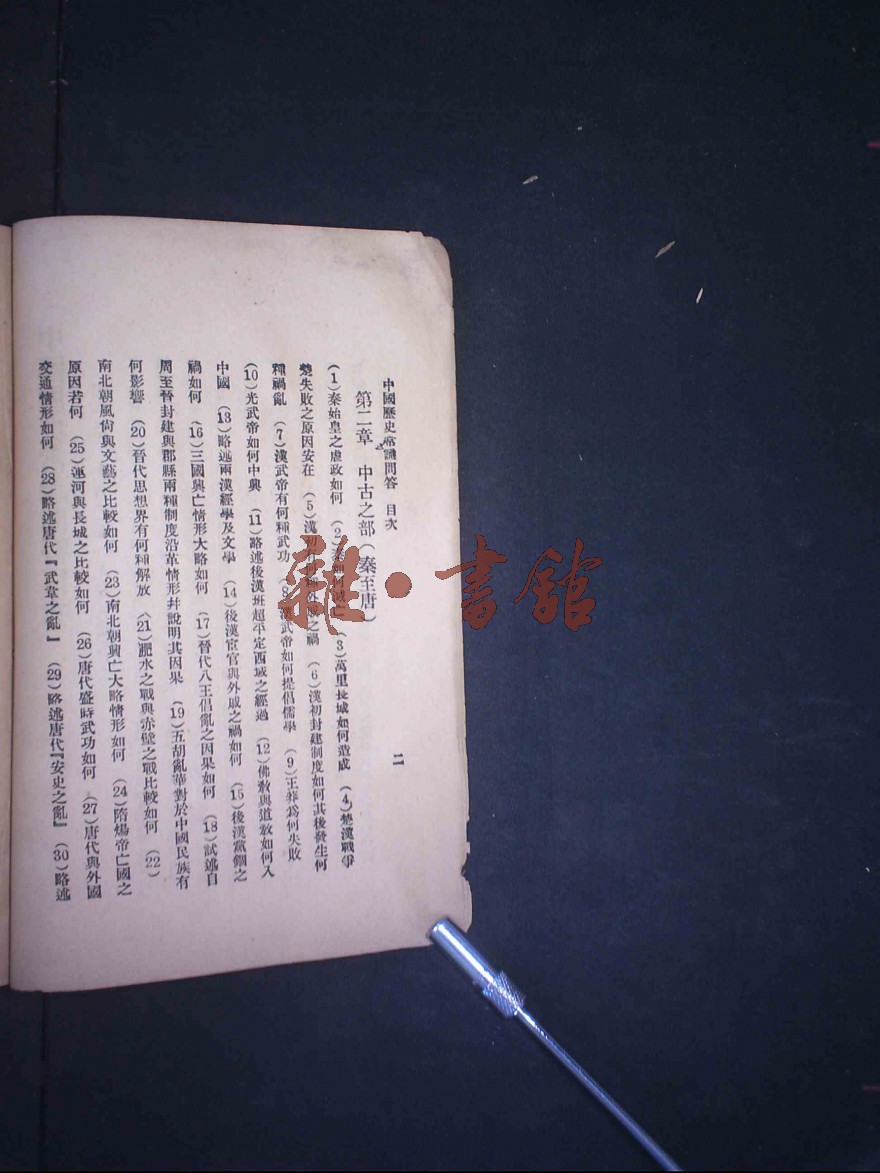 中國歷史常識問答 目次
二
第二章 中古之部（秦至唐）
(1)秦始皇之虐政如何 (2)秦如何滅 (3)萬里長城如何造成 (4)楚漢戰爭
楚失敗之原因安在 (5)漢初 之禍 (6)漢初封建制度如何其後發生何
種禍亂 (7)漢武帝有何種武功 (8)漢武帝如何提倡儒學 (9)王莽爲何失敗
(10)光武帝如何中興 (11)略述後漢班超平定西域之經過 (12)佛敎與道敎如何入
中國 (13)略述兩漢經學及文學 (14)後漢宦官與外戚之禍如何 (15)後漢黨錮之
禍如何 (16)三國興亡情形大略如何 (17)晉代八王倡亂之因果如何 (18)試述自
周至晉封建與郡縣兩種制度沿革情形幷說明其因果 (19)五胡亂華對於中國民族有
何影響 (20)晉代思想界有何種解放 (21)淝水之戰與赤壁之戰比較如何 (22)
南北朝風尙與文藝之比較如何 (23)南北朝興亡大略情形如何 (24)隋煬帝亡國之
原因若何 (25)運河與長城之比較如何 (26)唐代盛時武功如何 (27)唐代與外國
交通情形如何 (28)略述唐代『武韋之亂』 (29)略述唐代『安史之亂』 (30)略述
雜·書館